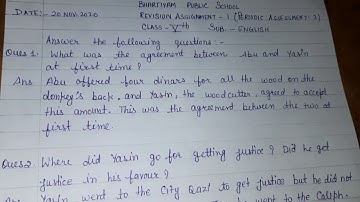 BHARTIYAM PUBLIC SCHOOL
DATE:- 20 NOV 2020 REVISION ASSIGNMENT - 1 (PERIODIC ASSESSMENT-3)
CLASS - Vth SUB. - ENGLISH
Answer the following questions :-
Ques 1. What was the agreement between Abu and Yasin
at first time?
Ans Abu offered four dinars for all the wood on the
donkey's back, and Yasin, the woodcutter, agreed to accept
this amount. This was the agreement between the two at
first time.
Ques.2 Where did Yasin go for getting justice? Did he get
justice in his favour?
Ans Yasin went to the City Qazi to get justice but he did not
went to the Caliph-